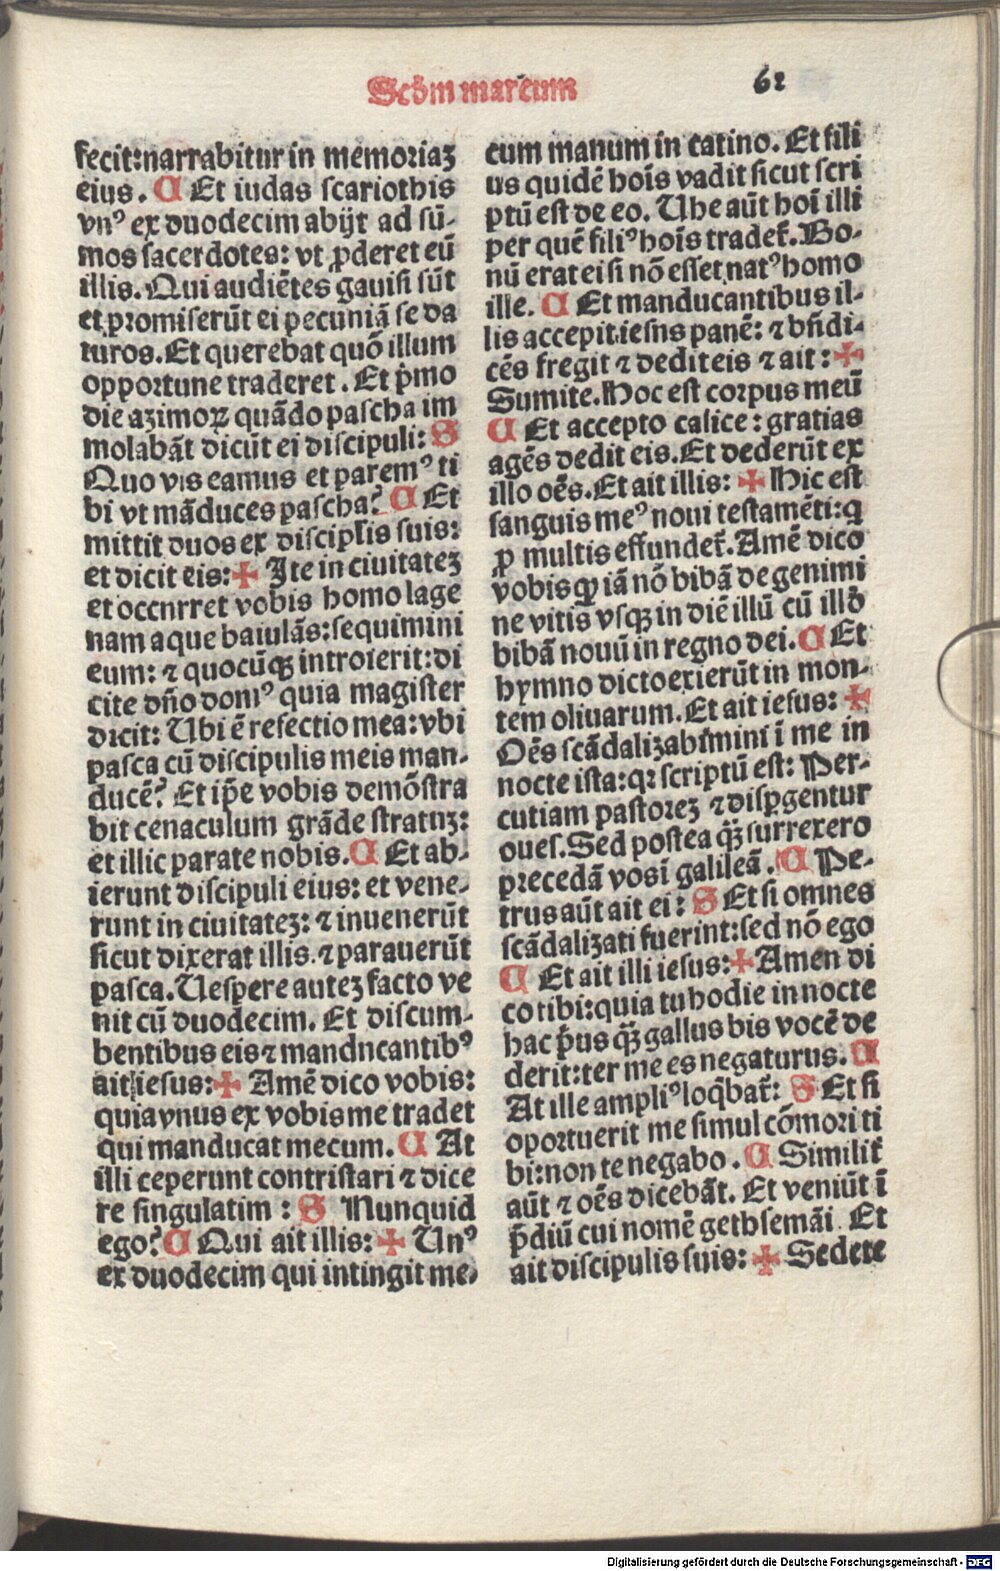 Scd̃m marcum
62
fecit:narrabitur in memoriaꝫ
eius. C Et iudas scariothis
vnꝰ ex duodecim abijt ad sū-
mos sacerdotes: vt ꝓderet eū
illis. Qui audiētes gauisi sūt
et promiserūt ei pecuniā se da
turos. Et querebat quō illum
opportune traderet. Et p̄mo
die azimoꝝ quādo pascha im
molabāt dicūt ei discipuli: S
Quo vis eamus et paremꝰ ti
bi vt māduces pascha? C Et
mittit duos ex discipl̄is suis:
et dicit eis: ✠ Ite in ciuitateꝫ
et occnrret vobis homo lage
nam aque baiulās: sequimini
eum: ⁊ quocūqꝫ introierit: di
cite dn̄o domꝰ quia magister
dicit: Ubi ē refectio mea: vbi
pasca cū discipulis meis man-
ducē? Et ip̄e vobis demōstra
bit cenaculum grāde stratuꝫ:
et illic parate nobis. C Et ab-
ierunt discipuli eius: et vene-
runt in ciuitateꝫ: ⁊ inuenerūt
sicut dixerat illis. ⁊ parauerūt
pasca. Uespere auteꝫ facto ve
nit cū duodecim. Et discum-
bentibus eis ⁊ mandncantibꝰ
ait iesus: ✠ Amē dico vobis:
quia vnus ex vobis me tradet
qui manducat mecum. C At
illi ceperunt contristari ⁊ dice
re singulatim: S Nunquid
ego? C Qui ait illis: ✠ Unꝰ
ex duodecim qui intingit me-
cum manum in catino. Et fili
us quidē hoīs vadit sicut scri
ptū est de eo. Uhe aūt hoī illi
per quē filiꝰ hoīs tradet̄. Bo-
nū erat ei si nō esset natꝰ homo
ille. C Et manducantibus il-
lis accepit iesns panē: ⁊ bn̄di-
cēs fregit ⁊ dedit eis ⁊ ait: ✠
Sumite. Hoc est corpus meū
C Et accepto calice: gratias
agēs dedit eis. Et dederūt ex
illo oēs. Et ait illis: ✠ Hic est
sanguis meꝰ noui testamēti: q
ꝓ multis effundet̄. Amē dico
vobis qꝫ iā nō bibā de genimi
ne vitis vsqꝫ in diē illū cū illd̄
bibā nouū in regno dei. C Et
hymno dicto exierūt in mon-
tem oliuarum. Et ait iesus: ✠
Oēs scādalizabimini ī me in
nocte ista: qꝛ scriptū est: Per-
cutiam pastoreꝫ ⁊ disꝑgentur
oues. Sed postea q̄ꝫ surrexero
precedā vos ī galileā. C Pe-
trus aūt ait ei: S Et si omnes
scādalizati fuerint: sed nō ego
C Et ait illi iesus: ✠ Amen di
co tibi: quia tu hodie in nocte
hac p̄us q̄ꝫ gallus bis vocē de
derit: ter me es negaturus. C
At ille ampliꝰ loq̄bat̄: S Et si
oportuerit me simul cōmori ti
bi: non te negabo. C Similit̄
aūt ⁊ oēs dicebāt. Et veniūt ī
p̄diū cui nomē gethsemāi. Et
ait discipulis suis: ✠ Sedete
Digitalisierung gefördert durch die Deutsche Forschungsgemeinschaft - DFG